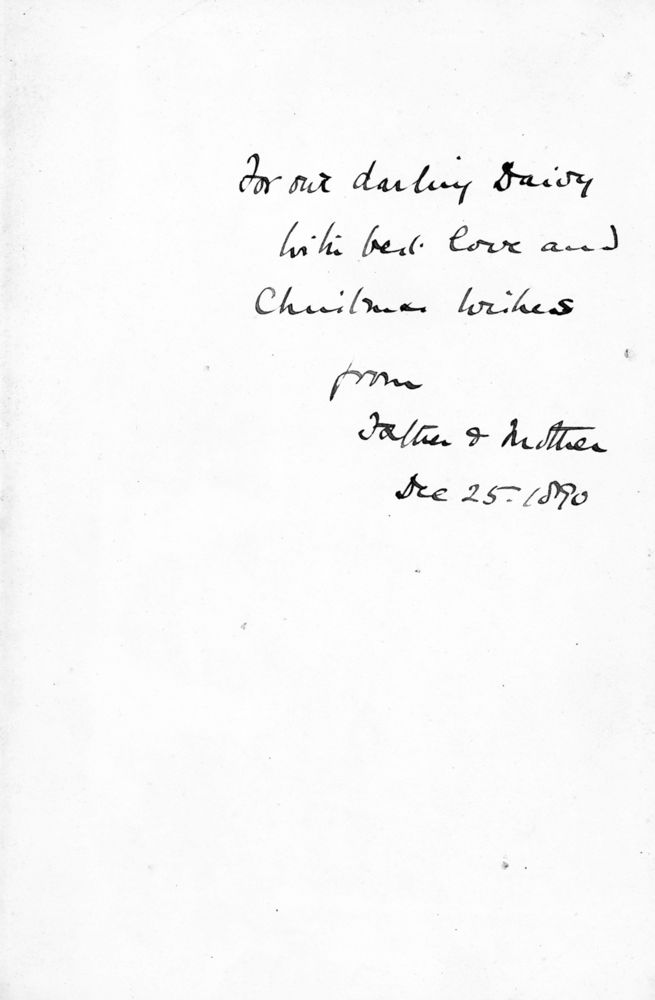 For our darling Daisy
With best love and
Christmas Wishes
from
Father & Mother
Dec 25. 1890